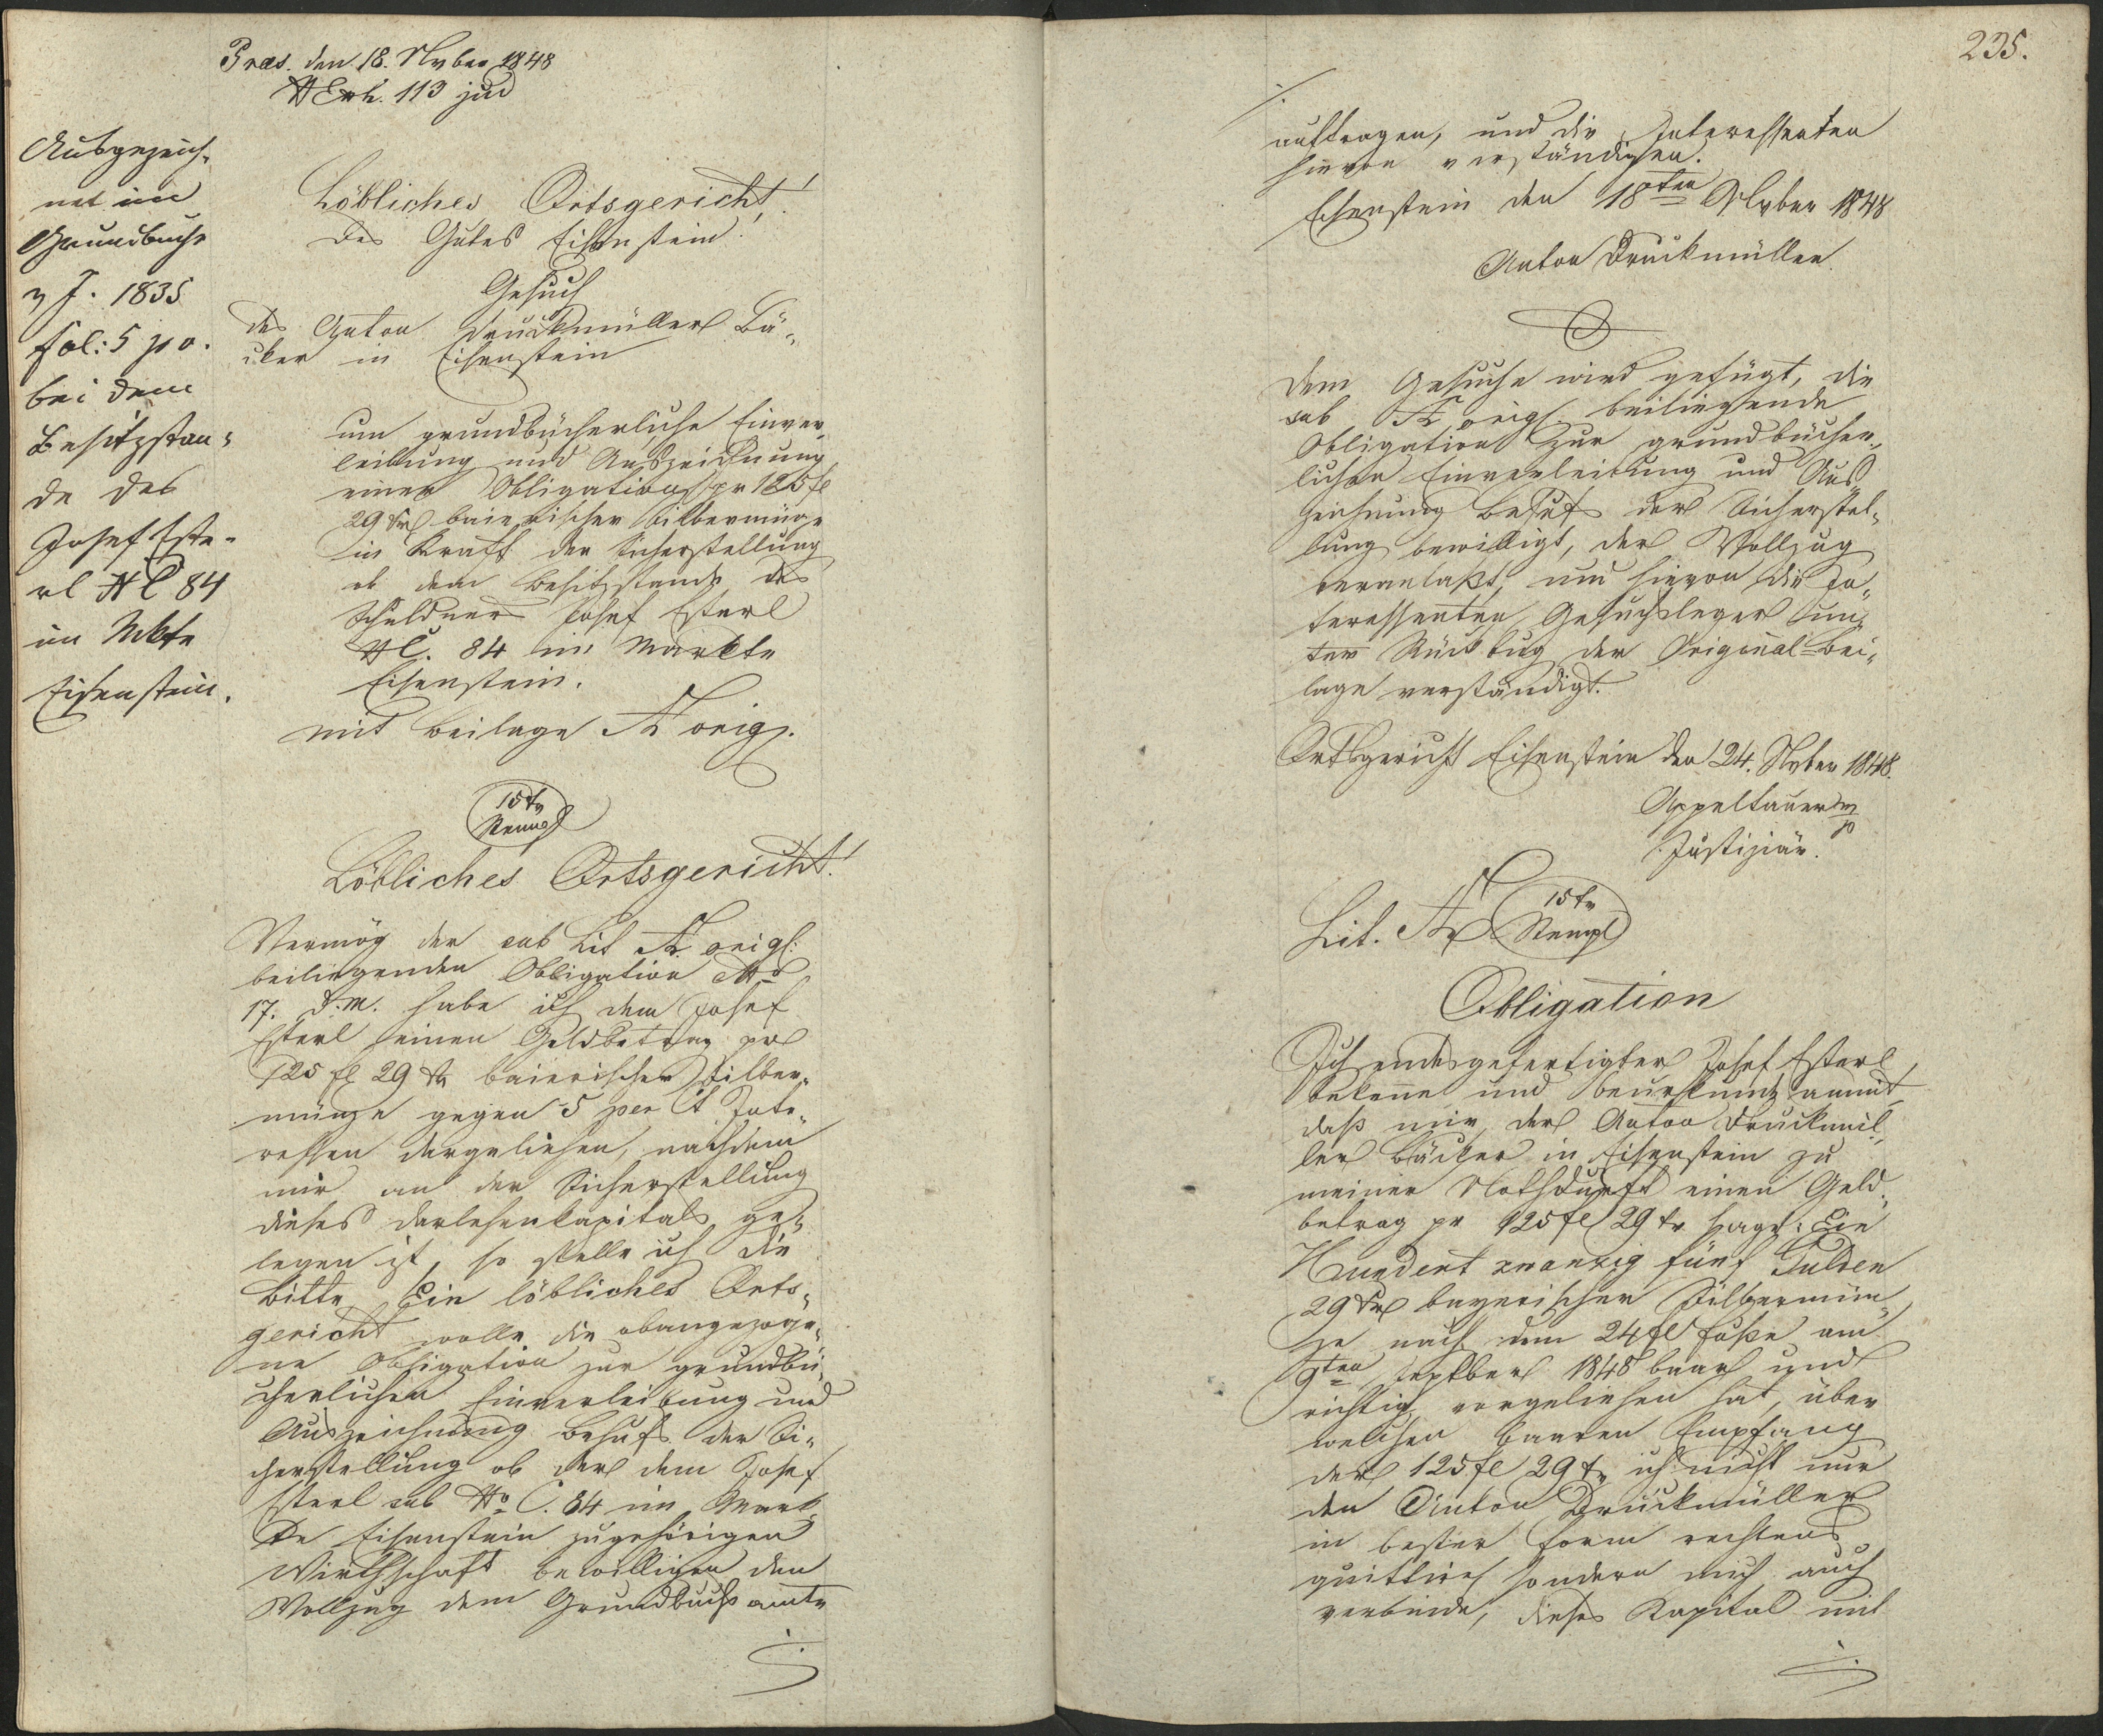 Præs. den 18. Nvber 1848
N Exh. 113 jud
Ausgezeich-
net im
Grundbuche
v J. 1835
fol: 5 po.
bei dem
Besitzstan-
de des
Josef Este-
rl NC 84
im Mkte
Eisenstein.
Löbliches Ortsgericht!
des Gutes Eisenstein.
Gesuch
des Anton Druckmüller Bä-
cker in Eisenstein
um grundbücherliche Einver-
leibung und Auszeichnung
einer Obligation pr 125 fl
29 xr baierischer Silbermünze
in Kraft der Sicherstellung
ob dem Besitzstande des
Schuldners Josef Esterl
NC. 84 im Markte
Eisenstein.
mit Beilage A origl.
15 xr
Stempl
Löbliches Ortsgericht!
Vermög der sub Lit A origl:
beiliegenden Obligation ddo
17. d. M. habe ich dem Josef
Esterl einen Geldbetrag pr
125 fl 29 xr baierischer Silber-
münze gegen 5 per Ct Inte-
ressen dargeliehen, nachdem
mir an der Sicherstellung
dieses Darlehenkapitals ge-
legen ist, so stelle ich die
Bitte Ein löbliches Orts-
gericht wolle die obangezoge-
ne Obligation zur grundbü-
cherlichen Einverleibung und
Auszeichnung behufs der Si-
cherstellung ob der dem Josef
Esterl sub No C. 84 im Mark-
te Eisenstein zugehörigen
Wirthschaft bewilligen den
Vollzug dem Grundbuchsamte
./.
235.
./.
auftragen, und die Interessenten
hievon verständigen.
Eisenstein den 18ten Nvber 1848
Anton Druckmüller.
Dem Gesuche wird gefügt, die
sub A origl beiliegende
Obligation zur grundbücher-
lichen Einverleibung und Aus-
zeichnung behufs der Sicherstel-
lung bewilligt, der Vollzug
veranlaßt, und hievon die In-
teressenten, Gesuchsleger un-
ter Rückbug der Original-Bei-
lage verständigt.
Ortsgericht Eisenstein den 24. Nvber 1848.
Appeltauer mp
Justiziär.
Lit. A
15 xr
Stempl
Obligation
Ich endesgefertigter Josef Esterl
bekenne und beurkunde anmit,
daß mir der Anton Druckmül-
ler Bäcker in Eisenstein zu
meiner Nothdurft einen Geld-
betrag pr 125 fl 29 xr sage: Ein
Hundert zwanzig fünf Gulden
29 xr bayerischer Silbermün-
ze nach dem 24 fl Fuße am
9ten Septber 1848 baar und
richtig vorgeliehen hat, über
welchen baaren Empfang
der 125 fl 29 xr ich nicht nur
den Anton Druckmüller
in bester Form rechtens
quittire sondern mich auch
verbinde, dieses Kapital mit
./.